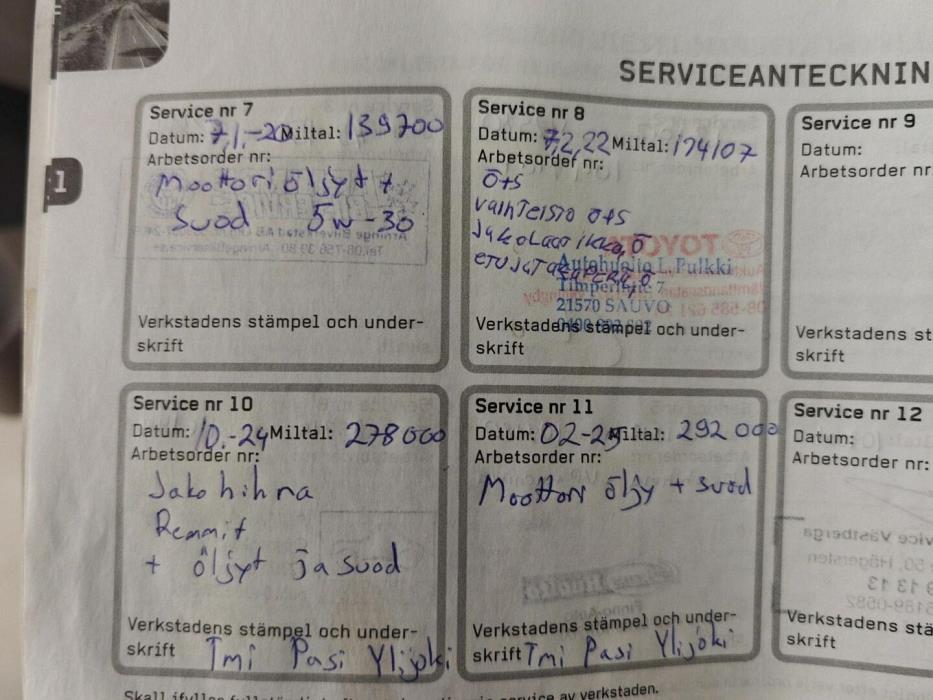 1
SERVICEANTECKNIN
Service nr 7
Datum: 7,1,-20 Miltal: 139700
Arbetsorder nr:
Moottori öljyt +
suod 5w-30
Verkstadens stämpel och under-
skrift
Service nr 8
Datum: 7,2,22 Miltal: 174107
Arbetsorder nr:
Ö+S
vaihteisto Ö+S
Jakolaatikko, Ö
etu ja taka Ö
Autohuolto L. Pulkki
Timperintie 7
21570 SAUVO
Verkstadens stämpel och under-
skrift
Service nr 9
Datum:
Arbetsorder nr
Verkstadens st
skrift
Service nr 10
Datum: 10.-24 Miltal: 278000
Arbetsorder nr:
Jako hihna
Remmit
+ öljyt ja suod
Verkstadens stämpel och under-
skrift Tmi Pasi Ylijoki
Service nr 11
Datum: 02-25 Miltal: 292 000
Arbetsorder nr:
Moottori öljy + suod
Verkstadens stämpel och under-
skrift Tmi Pasi Ylijoki
Service nr 12
Datum:
Arbetsorder nr:
Verkstadens stä
skrift